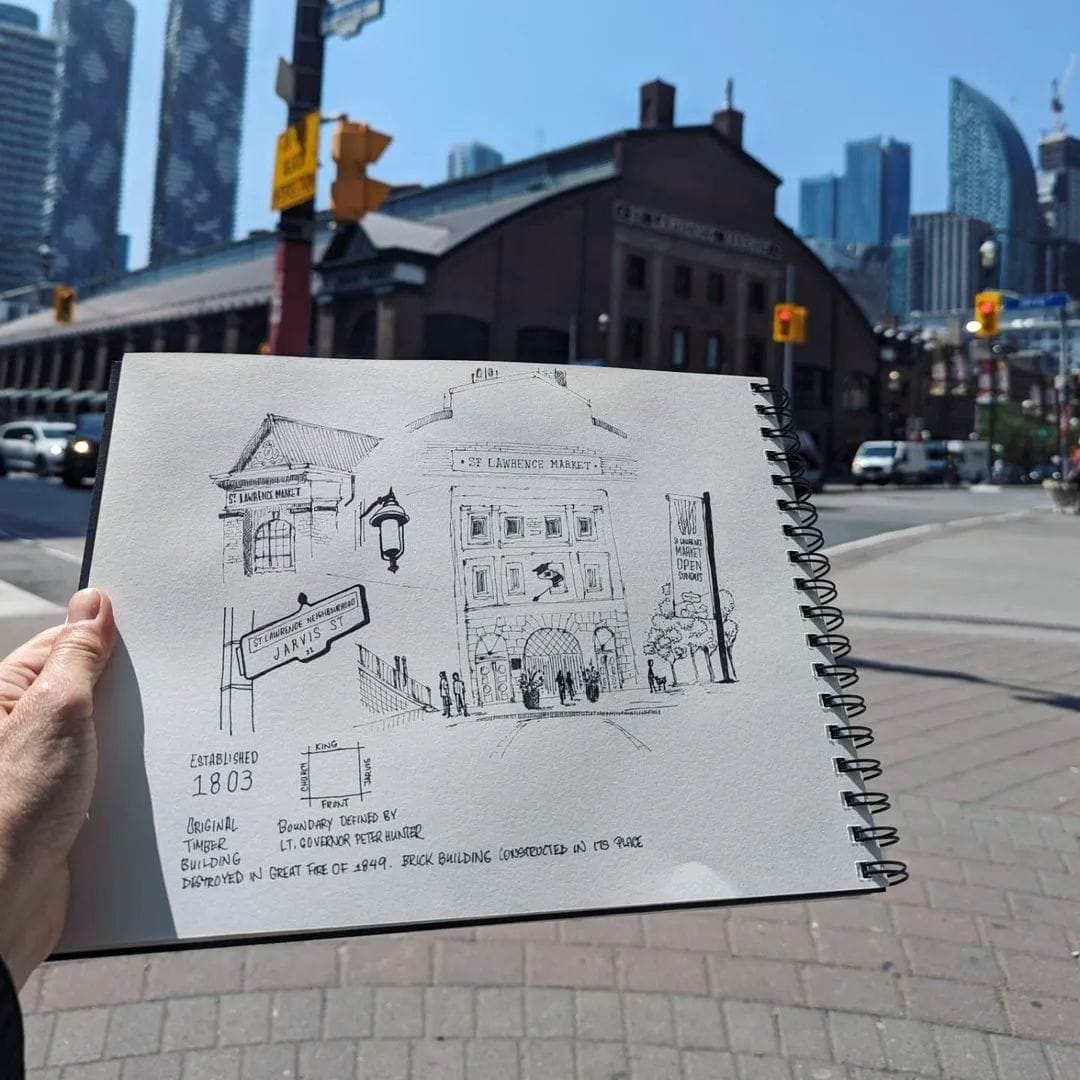 · ST LAWRENCE MARKET ·
ST LAWRENCE MARKET
ST LAWRENCE
MARKET
OPEN
SUNDAYS
ST LAWRENCE NEIGHBOURHOOD
JARVIS ST
ESTABLISHED
1803
KING
CHURCH
JARVIS
FRONT
ORIGINAL
TIMBER
BUILDING
BOUNDARY DEFINED BY
LT. GOVERNOR PETER HUNTER
DESTROYED IN GREAT FIRE OF 1849. BRICK BUILDING CONSTRUCTED IN ITS PLACE